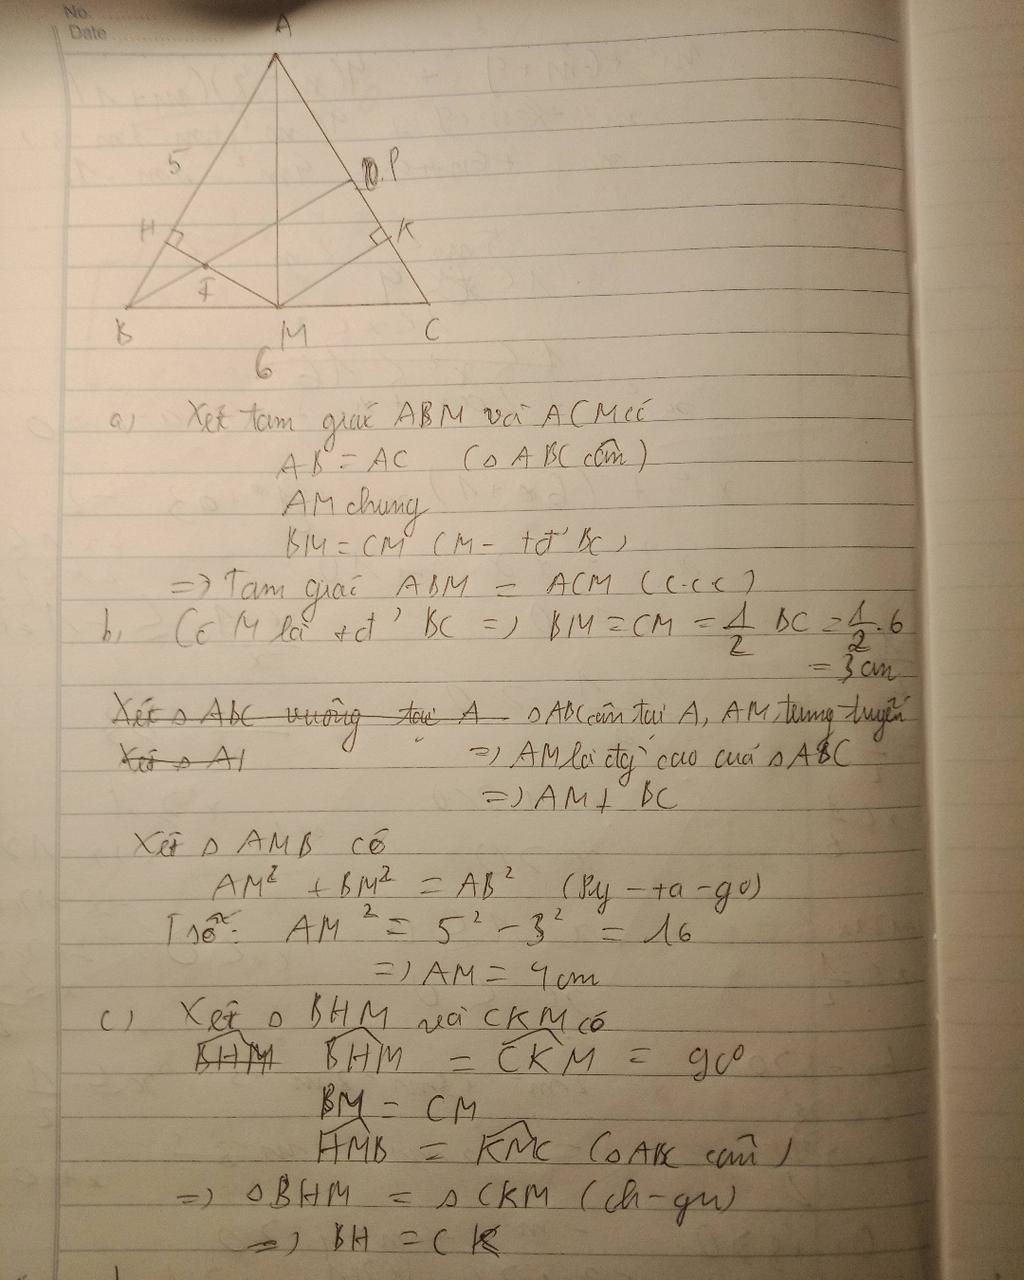 No.
Date
A
5
D.P
H
K
I
B
M
C
6
a) Xét tam giác ABM và ACM có
AB = AC (△ ABC cân)
AM chung
BM = CM (M - tđ' BC)
=> Tam giác ABM = ACM (c.c.c)
b, Có M là tđ' BC => BM = CM = 1/2 BC = 1/2 . 6
= 3 cm
Xét △ ABC vuông tại A △ABC cân tại A, AM, trung tuyến
Xét △ A1 => AM là đg' cao của △ ABC
=> AM ⊥ BC
Xét △ AMB có
AM² + BM² = AB² (Py - ta - go)
AM² = 5² - 3² = 16
=> AM = 4cm
c) Xét △ BHM và CKM có
BHM BHM = CKM = 90°
BM = CM
HMB = KMC (△ABC cân)
=> △BHM = △CKM (ch-gn)
=> BH = CK